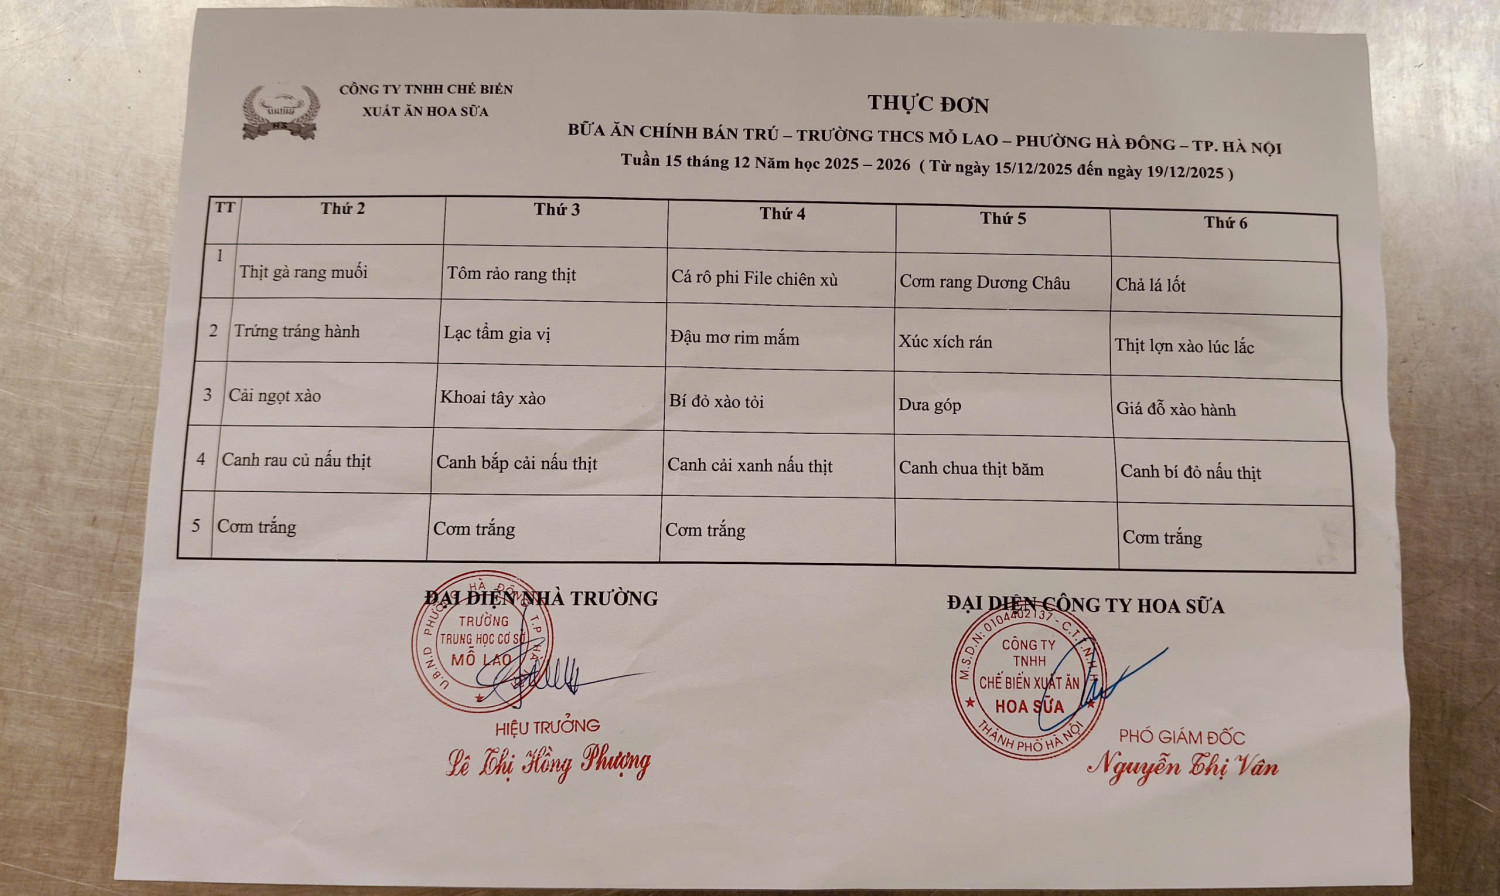 CÔNG TY TNHH CHẾ BIẾN
XUẤT ĂN HOA SỮA
THỰC ĐƠN
BỮA ĂN CHÍNH BÁN TRÚ – TRƯỜNG THCS MỖ LAO – PHƯỜNG HÀ ĐÔNG – TP. HÀ NỘI
Tuần 15 tháng 12 Năm học 2025 – 2026 ( Từ ngày 15/12/2025 đến ngày 19/12/2025 )
TT Thứ 2 Thứ 3 Thứ 4 Thứ 5 Thứ 6
1 Thịt gà rang muối Tôm rảo rang thịt Cá rô phi File chiên xù Cơm rang Dương Châu Chả lá lốt
2 Trứng tráng hành Lạc tẩm gia vị Đậu mơ rim mắm Xúc xích rán Thịt lợn xào lúc lắc
3 Cải ngọt xào Khoai tây xào Bí đỏ xào tỏi Dưa góp Giá đỗ xào hành
4 Canh rau củ nấu thịt Canh bắp cải nấu thịt Canh cải xanh nấu thịt Canh chua thịt băm Canh bí đỏ nấu thịt
5 Cơm trắng Cơm trắng Cơm trắng Cơm trắng
ĐẠI DIỆN NHÀ TRƯỜNG
U.B.N.D PHƯỜNG HÀ ĐÔNG T.P HÀ
TRƯỜNG
TRUNG HỌC CƠ SỞ
MỖ LAO
HIỆU TRƯỞNG
Lê Thị Hồng Phượng
ĐẠI DIỆN CÔNG TY HOA SỮA
M.S.D.N: 0104402137 - C.T.T.N.H.H
CÔNG TY
TNHH
CHẾ BIẾN XUẤT ĂN
HOA SỮA
THÀNH PHỐ HÀ NỘI
PHÓ GIÁM ĐỐC
Nguyễn Thị Vân